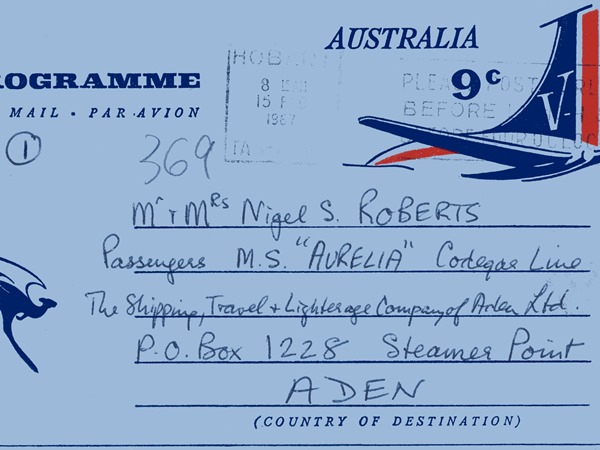 AUSTRALIA
9c
ROGRAMME
MAIL · PAR AVION
HOBART
8
15 FE
1967
TAS
PLEA POST
BEFORE
V
1
369
Mr + Mrs Nigel S. ROBERTS
Passengers M.S. "AURELIA" Codegar Line
The Shipping, Travel + Lighterage Company of Aden Ltd.
P.O. Box 1228 Steamer Point
ADEN
(COUNTRY OF DESTINATION)